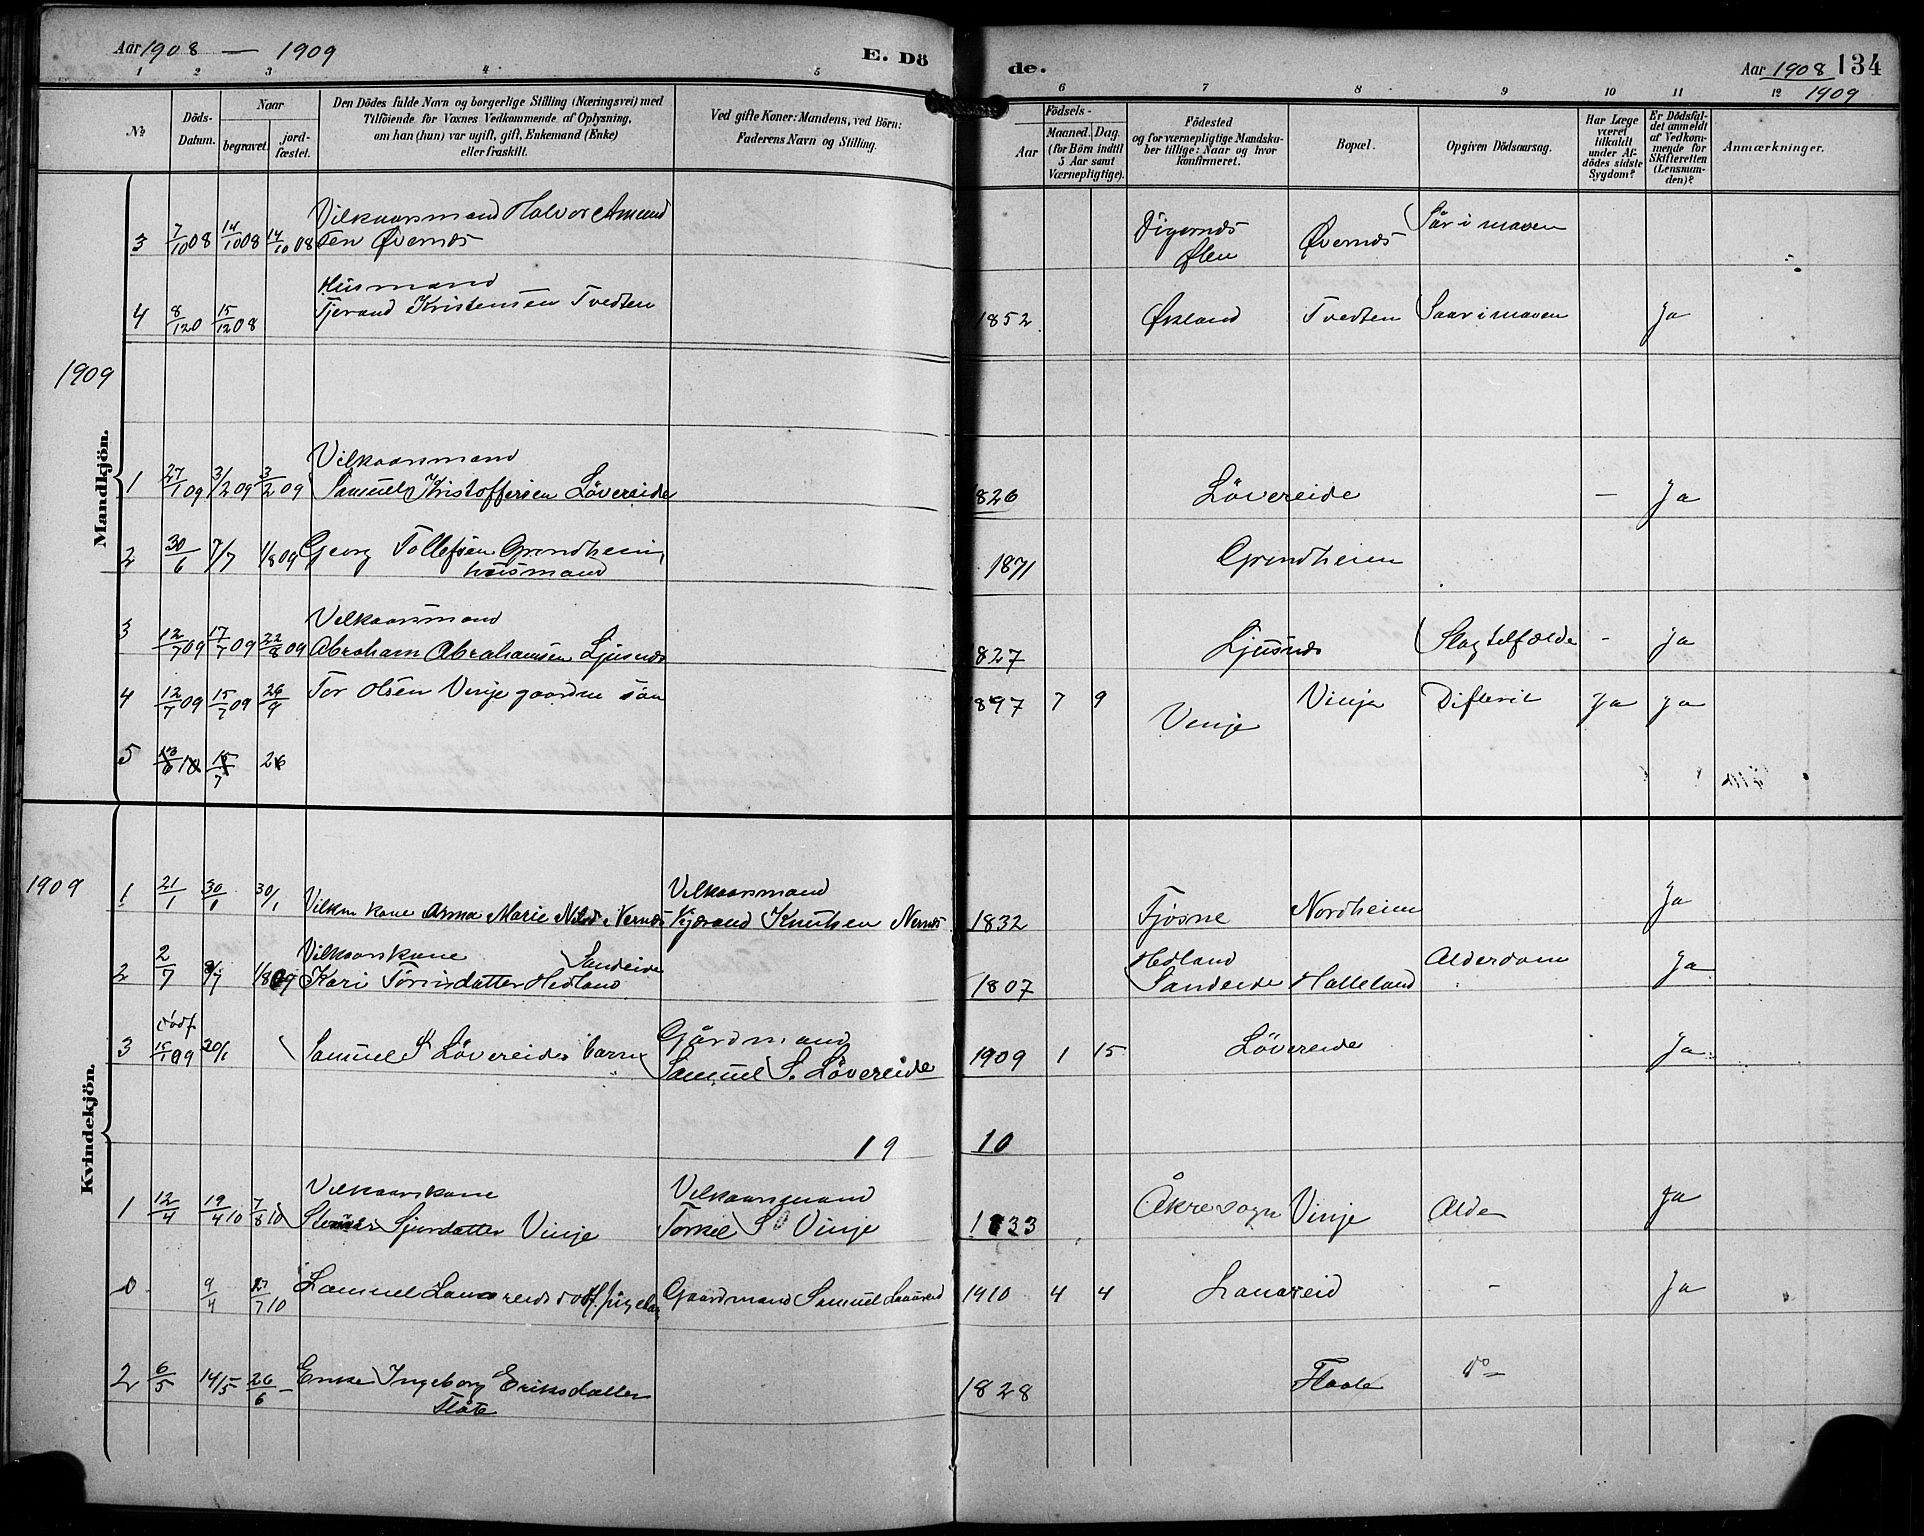 Aar 1908 — 1909
E. Dö
de.
Aar 1908 134
1909
1 2 3 4 5 6 7 8 9 10 11 12
№
Döds-Datum.
Naar
begravet.
jord-fæstet.
Den Dödes fulde Navn og borgerlige Stilling (Næringsvei) med
Tilföiende for Voxnes Vedkommende af Oplysning,
om han (hun) var ugift, gift, Enkemand (Enke)
eller fraskilt.
Ved gifte Koner: Mandens, ved Börn:
Faderens Navn og Stilling.
Födsels-
Aar
Maaned. Dag.
(for Börn indtil
5 Aar samt
Værnepligtige).
Födested
og for værnepligtige Mandska-
ber tillige: Naar og hvor
konfirmeret.
Bopæl.
Opgiven Dödsaarsag.
Har Læge
været
tilkaldt
under Af-
dödes sidste
Sygdom?
Er Dödsfal-
det anmeldt
af Vedkom-
mende for
Skifteretten
(Lensman-
den)?
Anmærkninger.
Mandkjön.
Vilkaarsmand Halvor Amund
3 7/10 08 14/10 08 14/10 08 sen Øvernes Digernes Ølen Øvernes Sår i maven
Husmand
4 8/12 0 15/12 08 Tjerand Kristensen Tvedten 1852 Økland Tvedten Saar i maven Ja
1909
Vilkaarsmand
1 27/1 09 3/2 09 3/2 09 Samuel Kristoffersen Lövereide 1826 Lövereide — Ja
2 30/6 7/7 1/8 09 Georg Tollefsen Grindheim, 1871 Grindheim
husmand
Vilkaarsmand
3 12/7 09 17/7 09 22/8 09 Abraham Abrahamsen Ljusnes 1827 Ljusnes Slagtilfælde - Ja
4 12/7 09 15/7 09 26/9 Tor Olsen Vinje gaardm. søn 1897 7 9 Vinje Vinje Difterit Ja Ja
5 15/7 26
Kvindekjön.
1909
Vilkaarsmand
1 21/1 30/1 30/1 Vilkm kone Anna Marie Nilsd. Nernes Kjørand Knutsen Nernes 1832 Fjøsne Nordheim Ja
Vilkaarskone Sandeide
2 2/7 8/7 1/8 09 Kari Törrisdatter Hedland 1807 Hedland Sandeide Halleland Alderdom Ja
dødf.
3 15/1 09 20/1 Samuel S Lövereides barn Gårdmand
Samuel S. Lövereide 1909 1 15 Lövereide Ja
19 10
Vilkaarskone Vilkaarsmand
1 12/4 19/4 10 7/8 10 Sjurdatter Vinje Torkel S Vinje 1833 Åkre sogn Vinje Alde Ja
0 9/4 7 10 Samuel dødf. Gaardmand Samuel 1910 4 4 Lanareid - Ja
2 6/5 14/5 26/6 – Enke Ingeborg Eriksdatter 1828 Flaate do –
Flåte